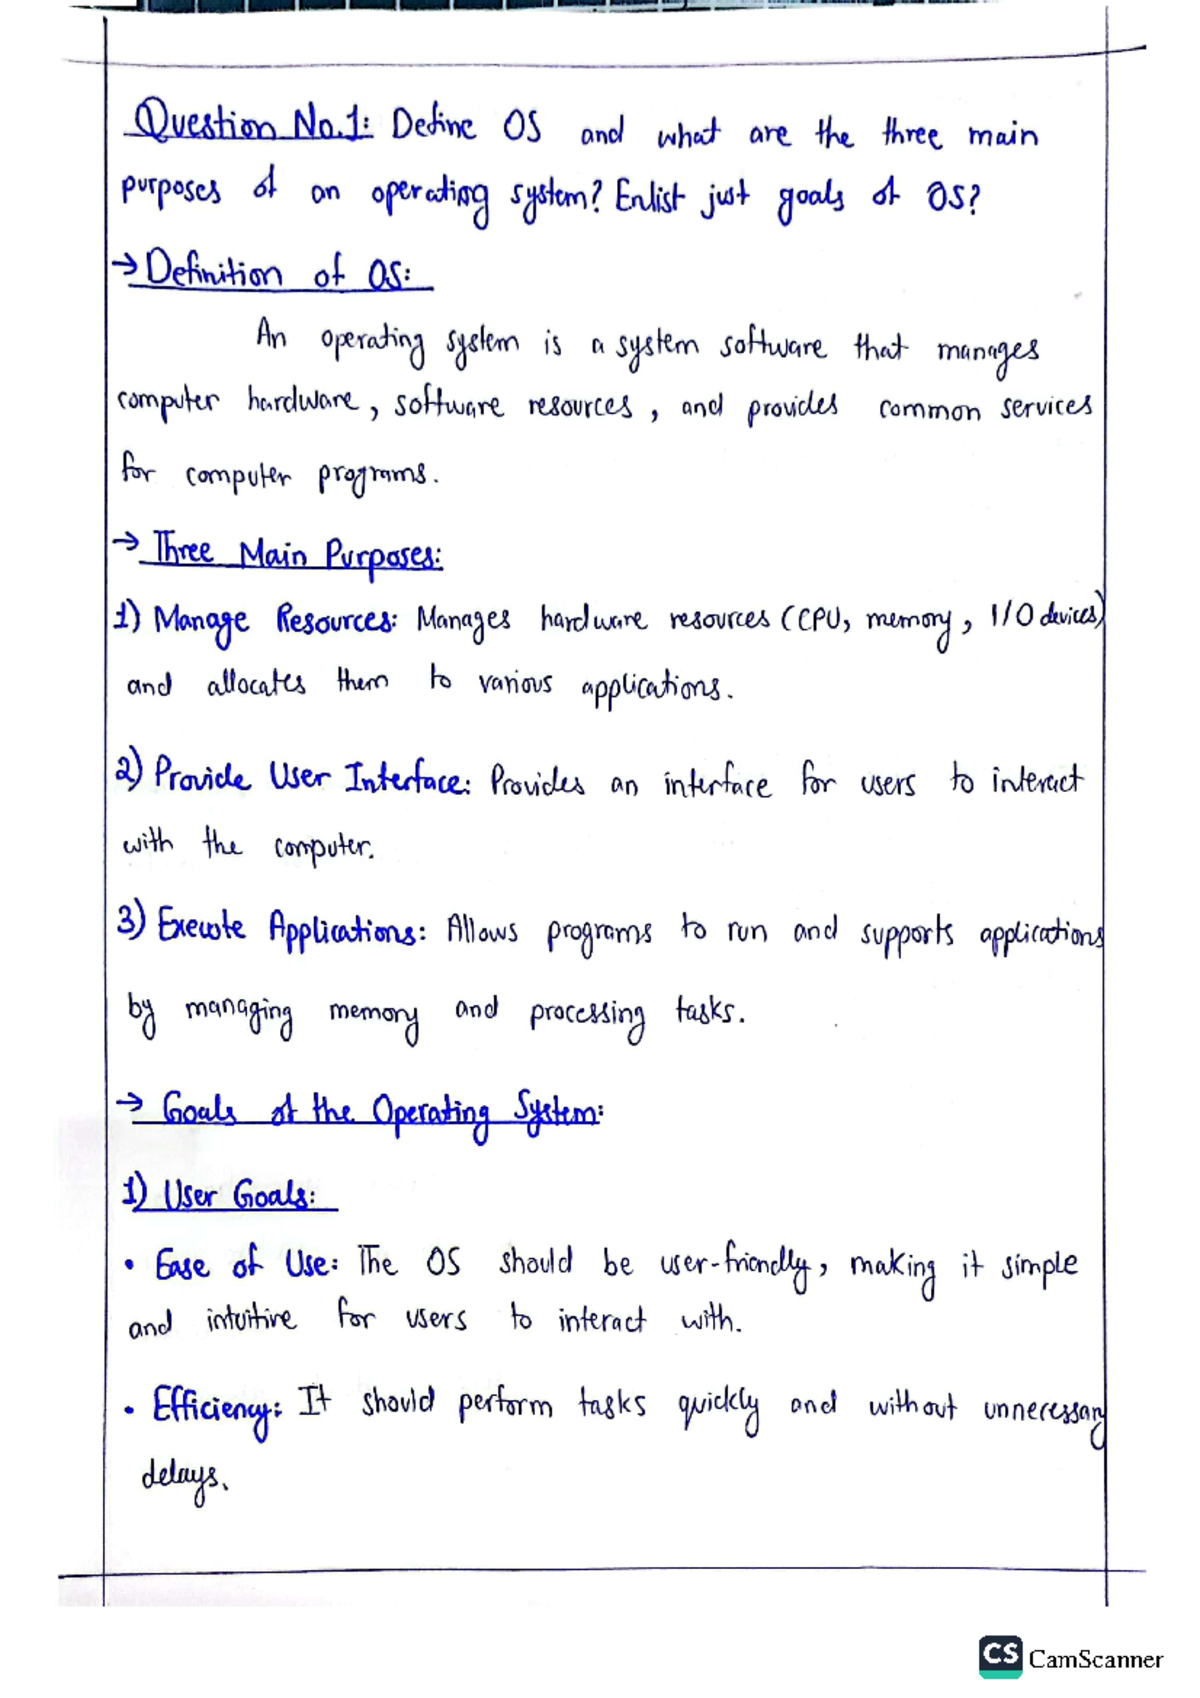 Question No.1: Define OS and what are the three main
purposes of an operating system? Enlist just goals of OS?
→ Definition of OS:
An operating system is a system software that manages
computer hardware, software resources, and provides common services
for computer programs.
→ Three Main Purposes:
1) Manage Resources: Manages hardware resources (CPU, memory, I/O devices)
and allocates them to various applications.
2) Provide User Interface: Provides an interface for users to interact
with the computer.
3) Execute Applications: Allows programs to run and supports applications
by managing memory and processing tasks.
→ Goals of the Operating System:
1) User Goals:
• Ease of Use: The OS should be user-friendly, making it simple
and intuitive for users to interact with.
• Efficiency: It should perform tasks quickly and without unnecessary
delays.
CS CamScanner